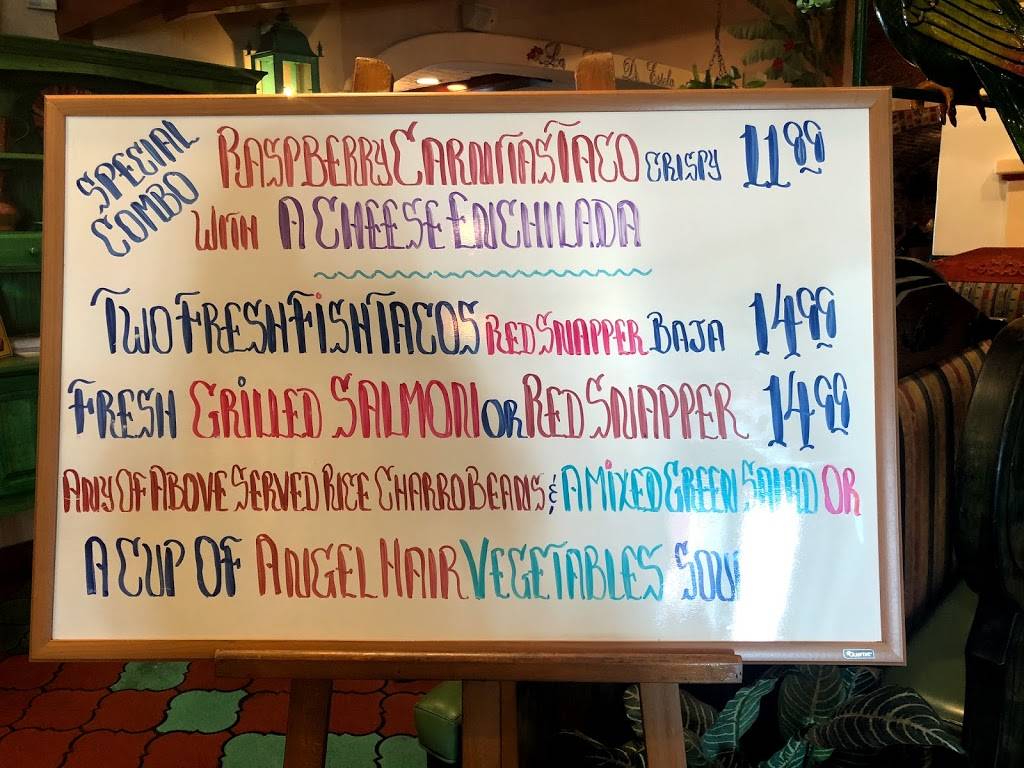 SPECIAL COMBO
RASPBERRY CARNITAS TACO CRISPY 11 99
WITH A CHEESE ENCHILADA
TWO FRESH FISH TACOS RED SNAPPER BAJA 14 99
FRESH GRILLED SALMON OR RED SNAPPER 14 99
ANY OF ABOVE SERVED RICE CHARRO BEANS & A MIXED GREEN SALAD OR
A CUP OF ANGEL HAIR VEGETABLES SOUP
Quartet